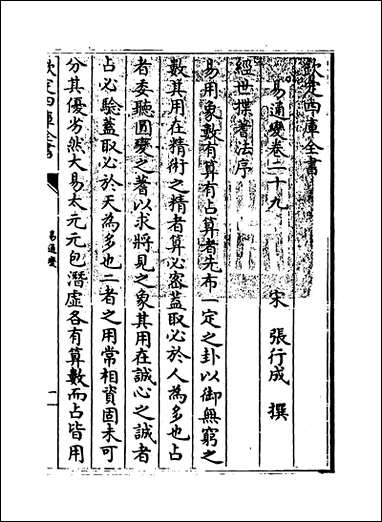 欽定四庫全書
易通變卷二十九
宋 張行成 撰
經世揲蓍法序
易用象數有算有占算者先布一定之卦以御無窮之
數其用在精術之精者算必密蓋取必於人為多也占
者委聽圓變之蓍以求將見之象其用在誠心之誠者
占必驗蓋取必於天為多也二者之用常相資固未可
分其優劣然大易太元元包潛虛各有算數而占皆用
欽定四庫全書
易通變
一